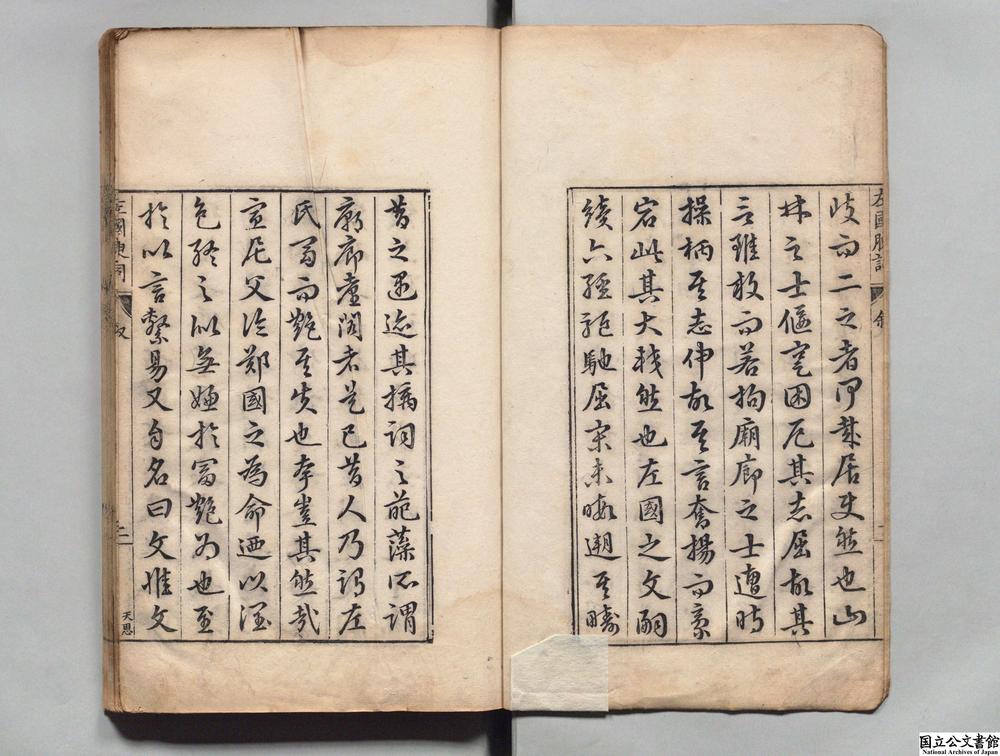 左國腴詞
叙
二
歧而二之者何哉居使然也山
林之士偃蹇困厄其志屈故其
言雖放而若拘廟廊之士遭時
操柄其志伸故其言奮揚而豪
宕此其大較然也左國之文嗣
續六經馳屈宋未暇遡其疇
昔之迹其摛詞之葩藻所謂
廟廊臺閣者是已昔人乃謂左
氏富而艷其失也夸豈其然哉
宣尼父談鄭國之為命迺以潤
色終之似無嫌於富艷為也至
於以言繫易又自名曰文惟文
左國腴詞
叙
三
天恩
国立公文書館
National Archives of Japan